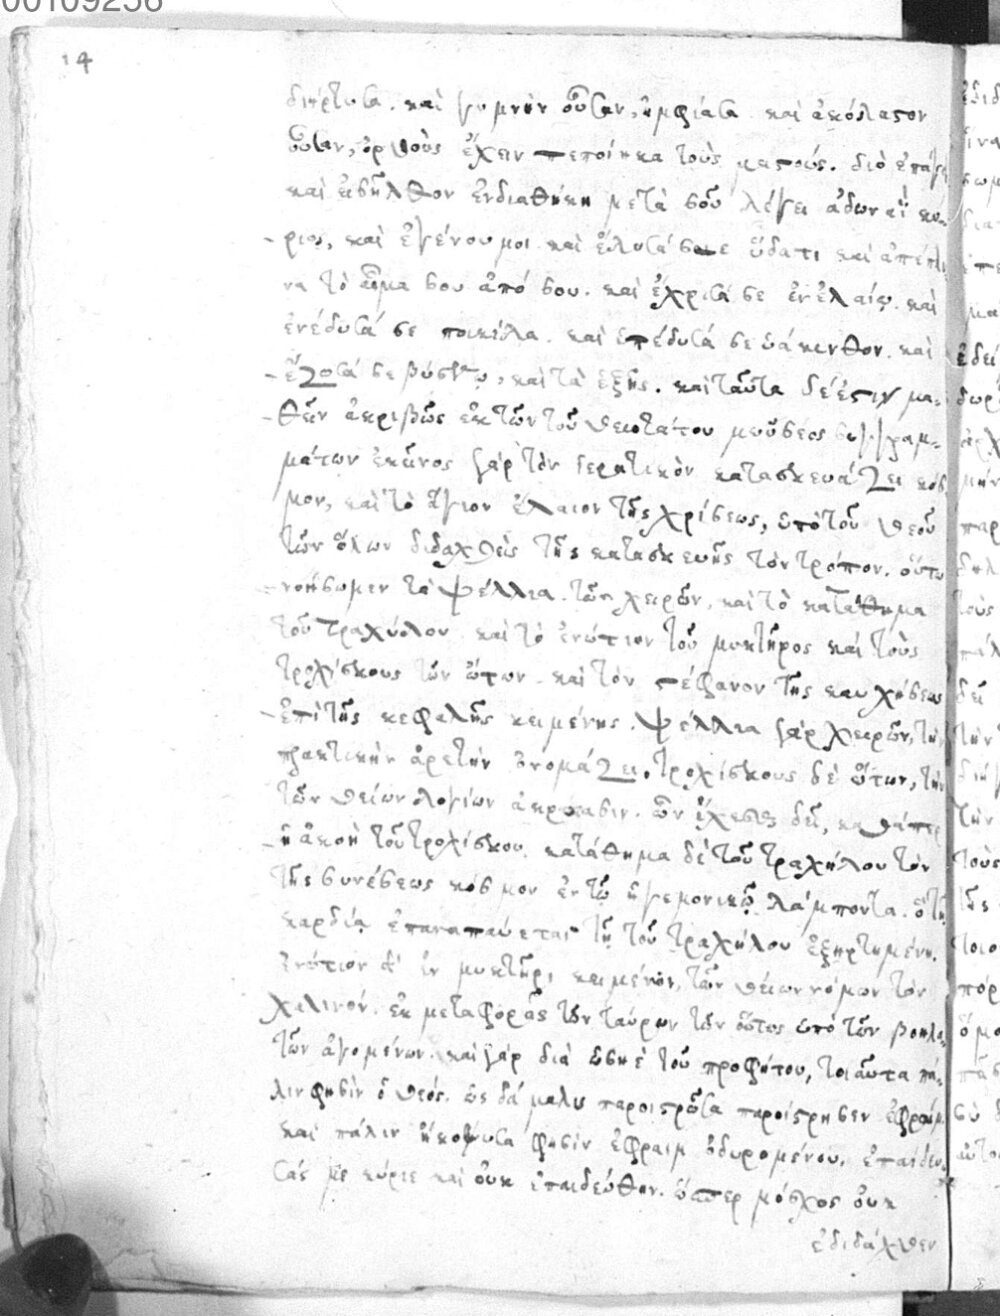 00109256
14
διήρτυσα. καὶ γυμνὴν οὖσαν, ἠμφίασα. καὶ ἀκόλαστον
οὖσαν, ὀρθοὺς ἔχειν πεποίηκα τοὺς μαστούς. διὸ ἐπάγει
καὶ εἰσῆλθον ἐν διαθήκῃ μετὰ σοῦ λέγει ἀδωναῒ κύ-
ριος, καὶ ἐγένου μοι. καὶ ἔλουσά σε ὕδατι καὶ ἀπέπλυ
να τὸ αἷμα σου ἀπό σου. καὶ ἔχρισά σε ἐν ἐλαίῳ. καὶ
ἐνέδυσά σε ποικίλα. καὶ ὑπέδυσά σε ὑάκινθον. καὶ
ἔζωσά σε βύσσῳ, καὶ τὰ ἑξῆς. καὶ ταῦτα δέ ἐστιν μα-
θεῖν ἀκριβῶς ἐκ τῶν τοῦ θειοτάτου μωϋσέος συγγραμ-
μάτων ἐκεῖνος γὰρ τὸν ἱερατικὸν κατασκευάζει κόσ
μον, καὶ τὸ ἅγιον ἔλαιον τῆς χρίσεως, ὑπὸ τοῦ θεοῦ
τῶν ὅλων διδαχθεὶς τῆς κατασκευῆς τὸν τρόπον. οὕτω
νοήσωμεν τὰ ψέλλια τῶν χειρῶν, καὶ τὸ κατάθημα
τοῦ τραχήλου. καὶ τὸ ἐνώτιον τοῦ μυκτῆρος καὶ τοὺς
τροχίσκους τῶν ὤτων. καὶ τὸν στέφανον τῆς καυχήσεως
ἐπὶ τῆς κεφαλῆς κειμένης. ψέλλια γὰρ χειρῶν, τὴν
πρακτικὴν ἀρετὴν ὀνομάζει. τροχίσκους δὲ ὤτων, τὴν
τῶν θείων λογίων ἀκρόασιν. ὧν ἔχεσθαι δεῖ, καθάπερ
ἡ ἀκοὴ τοῦ τροχίσκου. κατάθημα δὲ τοῦ τραχήλου τὸν
τῆς συνέσεως κόσμον ἐν τῷ ἡγεμονικῷ λάμποντα. ὃ τῇ
καρδίᾳ ἐπαναπαύεται τῇ τοῦ τραχήλου ἐξηρτημένη.
ἐνώτιον δ' ἐν μυκτῆρι κειμένον, τῶν θείων νόμων τὸν
χαλινόν. ἐκ μεταφορᾶς τῶν ταύρων τῶν οὕτως ὑπὸ τῶν βοηλα-
τῶν ἀγομένων. καὶ γὰρ διὰ ὡσηὲ τοῦ προφήτου, τοιαῦτα πά-
λιν φησὶν ὁ θεός. ὡς δάμαλις παροιστρῶσα παροίστρησεν ἐφραίμ.
καὶ πάλιν ἤκουσα φησὶν ἐφραιμ ὀδυρομένου. ἐπαίδευ-
σάς με κύριε καὶ οὐκ ἐπαιδεύθην. ὥσπερ μόσχος οὐκ
ἐδιδάχθην